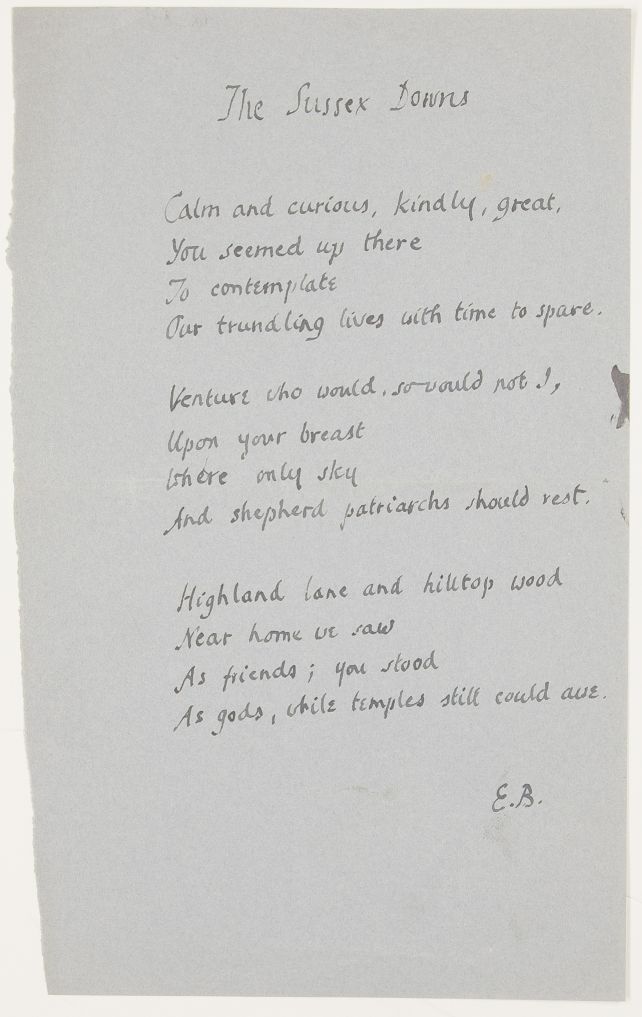 The Sussex Downs
Calm and curious, kindly, great,
You seemed up there
To contemplate
Our trundling lives with time to spare.
Venture who would, so would not I,
Upon your breast
Where only sky
And shepherd patriarchs should rest.
Highland lane and hilltop wood
Near home we saw
As friends; you stood
As gods, while temples still could awe.
E.B.